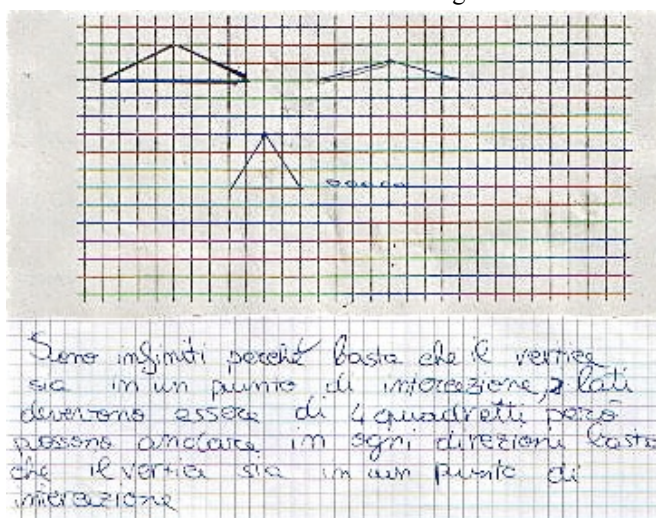 Sono infiniti perché basta che il vertice
sia in un punto di interazione, 2 lati
devono essere di 4 quadretti però
possono andare in ogni direzione basta
che il vertice sia in un punto di
interazione